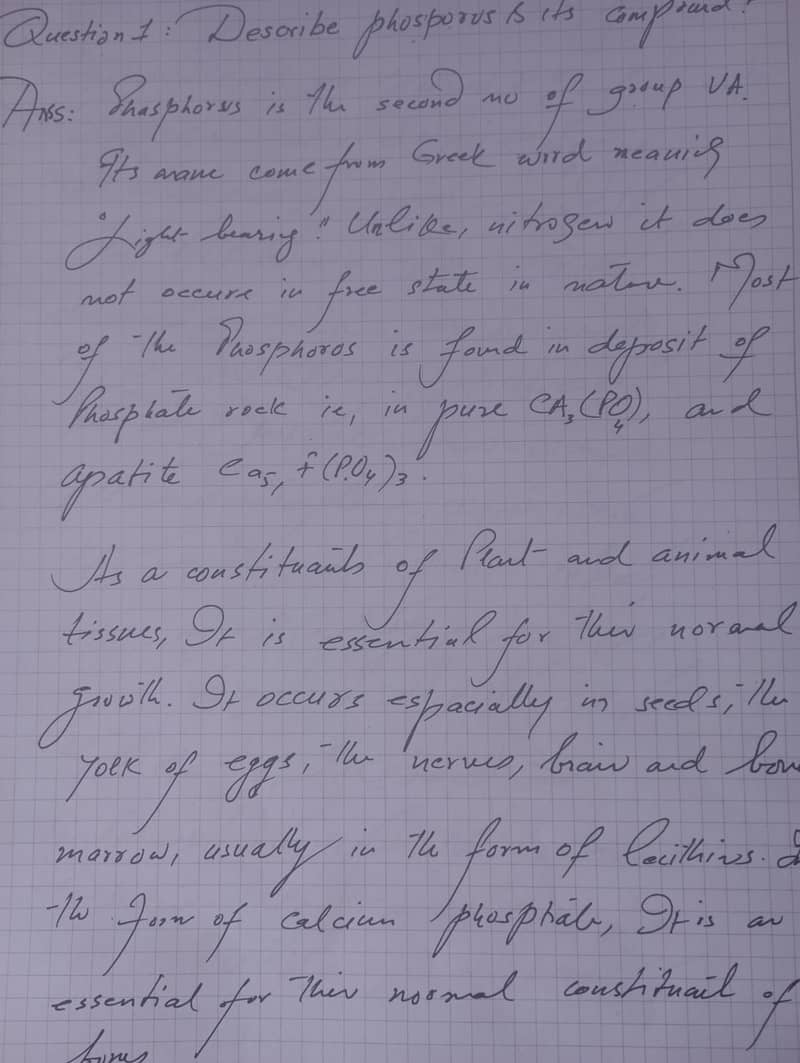 Question 1: Describe phosporus & its compound?
Ans: Phasphorus is the second no of group VA.
Its name come from Greek word meaning
"Light bearing". Unlike, nitrogen it does
not occure in free state in nature. Most
of the Phosphoros is found in deposit of
Phosphate rock ie, in pure CA3(PO4), and
apatite Ca5, f(P.O4)3.
As a constituants of Plant and animal
tissues, It is essential for thier normal
growth. It occurs espacially in seeds, the
yolk of eggs, the nerves, brain and bone
marrow, usually in the form of lecithins.
the form of calcium phosphate, It is an
essential for thier normal constituait of
bones